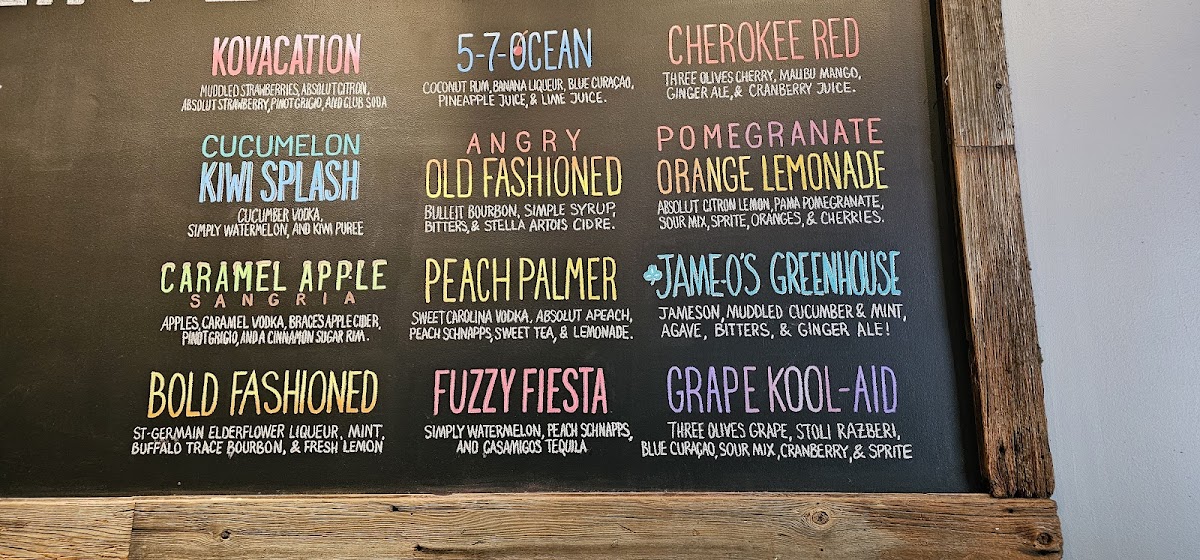 KOVACATION
MUDDLED STRAWBERRIES, ABSOLUT CITRON,
ABSOLUT STRAWBERRY, PINOT GRIGIO, AND CLUB SODA
CUCUMELON
KIWI SPLASH
CUCUMBER VODKA,
SIMPLY WATERMELON, AND KIWI PUREE
CARAMEL APPLE
SANGRIA
APPLES, CARAMEL VODKA, BRACE'S APPLE CIDER,
PINOT GRIGIO, AND A CINNAMON SUGAR RIM.
BOLD FASHIONED
ST-GERMAIN ELDERFLOWER LIQUEUR, MINT,
BUFFALO TRACE BOURBON, & FRESH LEMON
5-7-OCEAN
COCONUT RUM, BANANA LIQUEUR, BLUE CURAÇAO,
PINEAPPLE JUICE, & LIME JUICE.
ANGRY
OLD FASHIONED
BULLEIT BOURBON, SIMPLE SYRUP,
BITTERS, & STELLA ARTOIS CIDRE.
PEACH PALMER
SWEET CAROLINA VODKA, ABSOLUT APEACH,
PEACH SCHNAPPS, SWEET TEA, & LEMONADE.
FUZZY FIESTA
SIMPLY WATERMELON, PEACH SCHNAPPS,
AND CASAMIGOS TEQUILA
CHEROKEE RED
THREE OLIVES CHERRY, MALIBU MANGO,
GINGER ALE, & CRANBERRY JUICE.
POMEGRANATE
ORANGE LEMONADE
ABSOLUT CITRON LEMON, PAMA POMEGRANATE,
SOUR MIX, SPRITE, ORANGES, & CHERRIES.
JAME-O'S GREENHOUSE
JAMESON, MUDDLED CUCUMBER & MINT,
AGAVE, BITTERS, & GINGER ALE!
GRAPE KOOL-AID
THREE OLIVES GRAPE, STOLI RAZBERI,
BLUE CURAÇAO, SOUR MIX, CRANBERRY, & SPRITE